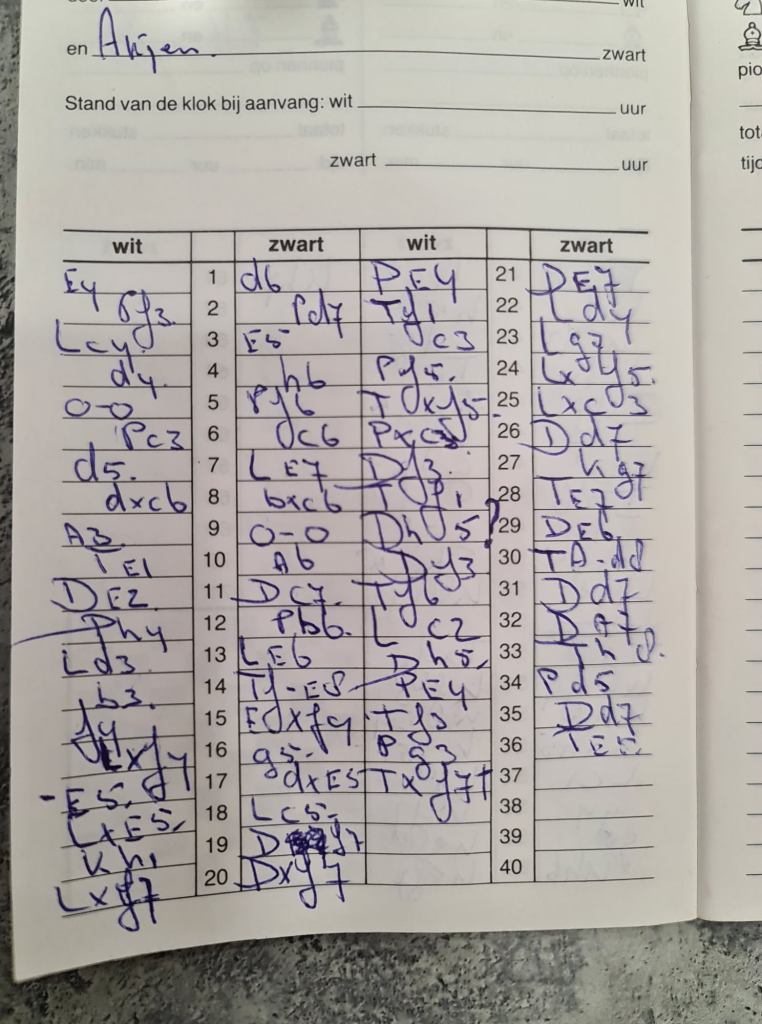 wit
en Arijen. zwart
Stand van de klok bij aanvang: wit uur
zwart uur
pio
tot
tijd
wit zwart wit zwart
E4 1 d6 PE4 21 DE7
Pf3 2 Pd7 Tf1 22 Ld4
Lc4 3 E5 c3 23 Lg7
d4. 4 h6 Pf5. 24 Lxf5.
0-0 5 Pf6 Txf5. 25 Lxc3
Pc3 6 c6 Pxc3 26 Dd7
d5. 7 LE7 Df3. 27 Kg7
dxc6 8 bxc6 Tf1 28 TE7
A3 9 0-0 Dh5? 29 DE6
TE1 10 A6 Df3 30 TA-d8
DE2 11 Dc7 Tf6 31 Dd7
Ph4 12 Pb6. Lc2 32 DA7
Ld3 13 LE6 Dh5. 33 Th8.
b3. 14 Tf-E8 PE4 34 Pd5
f4 15 Exf4 Tf3 35 Dd7
Lxf4 16 g5. Pg3 36
E5. 17 dxE5 Txf7+ 37
LxE5. 18 Lc5. 38
Kh1 19 D f7 39
Lxf7 20 Dxf7 40